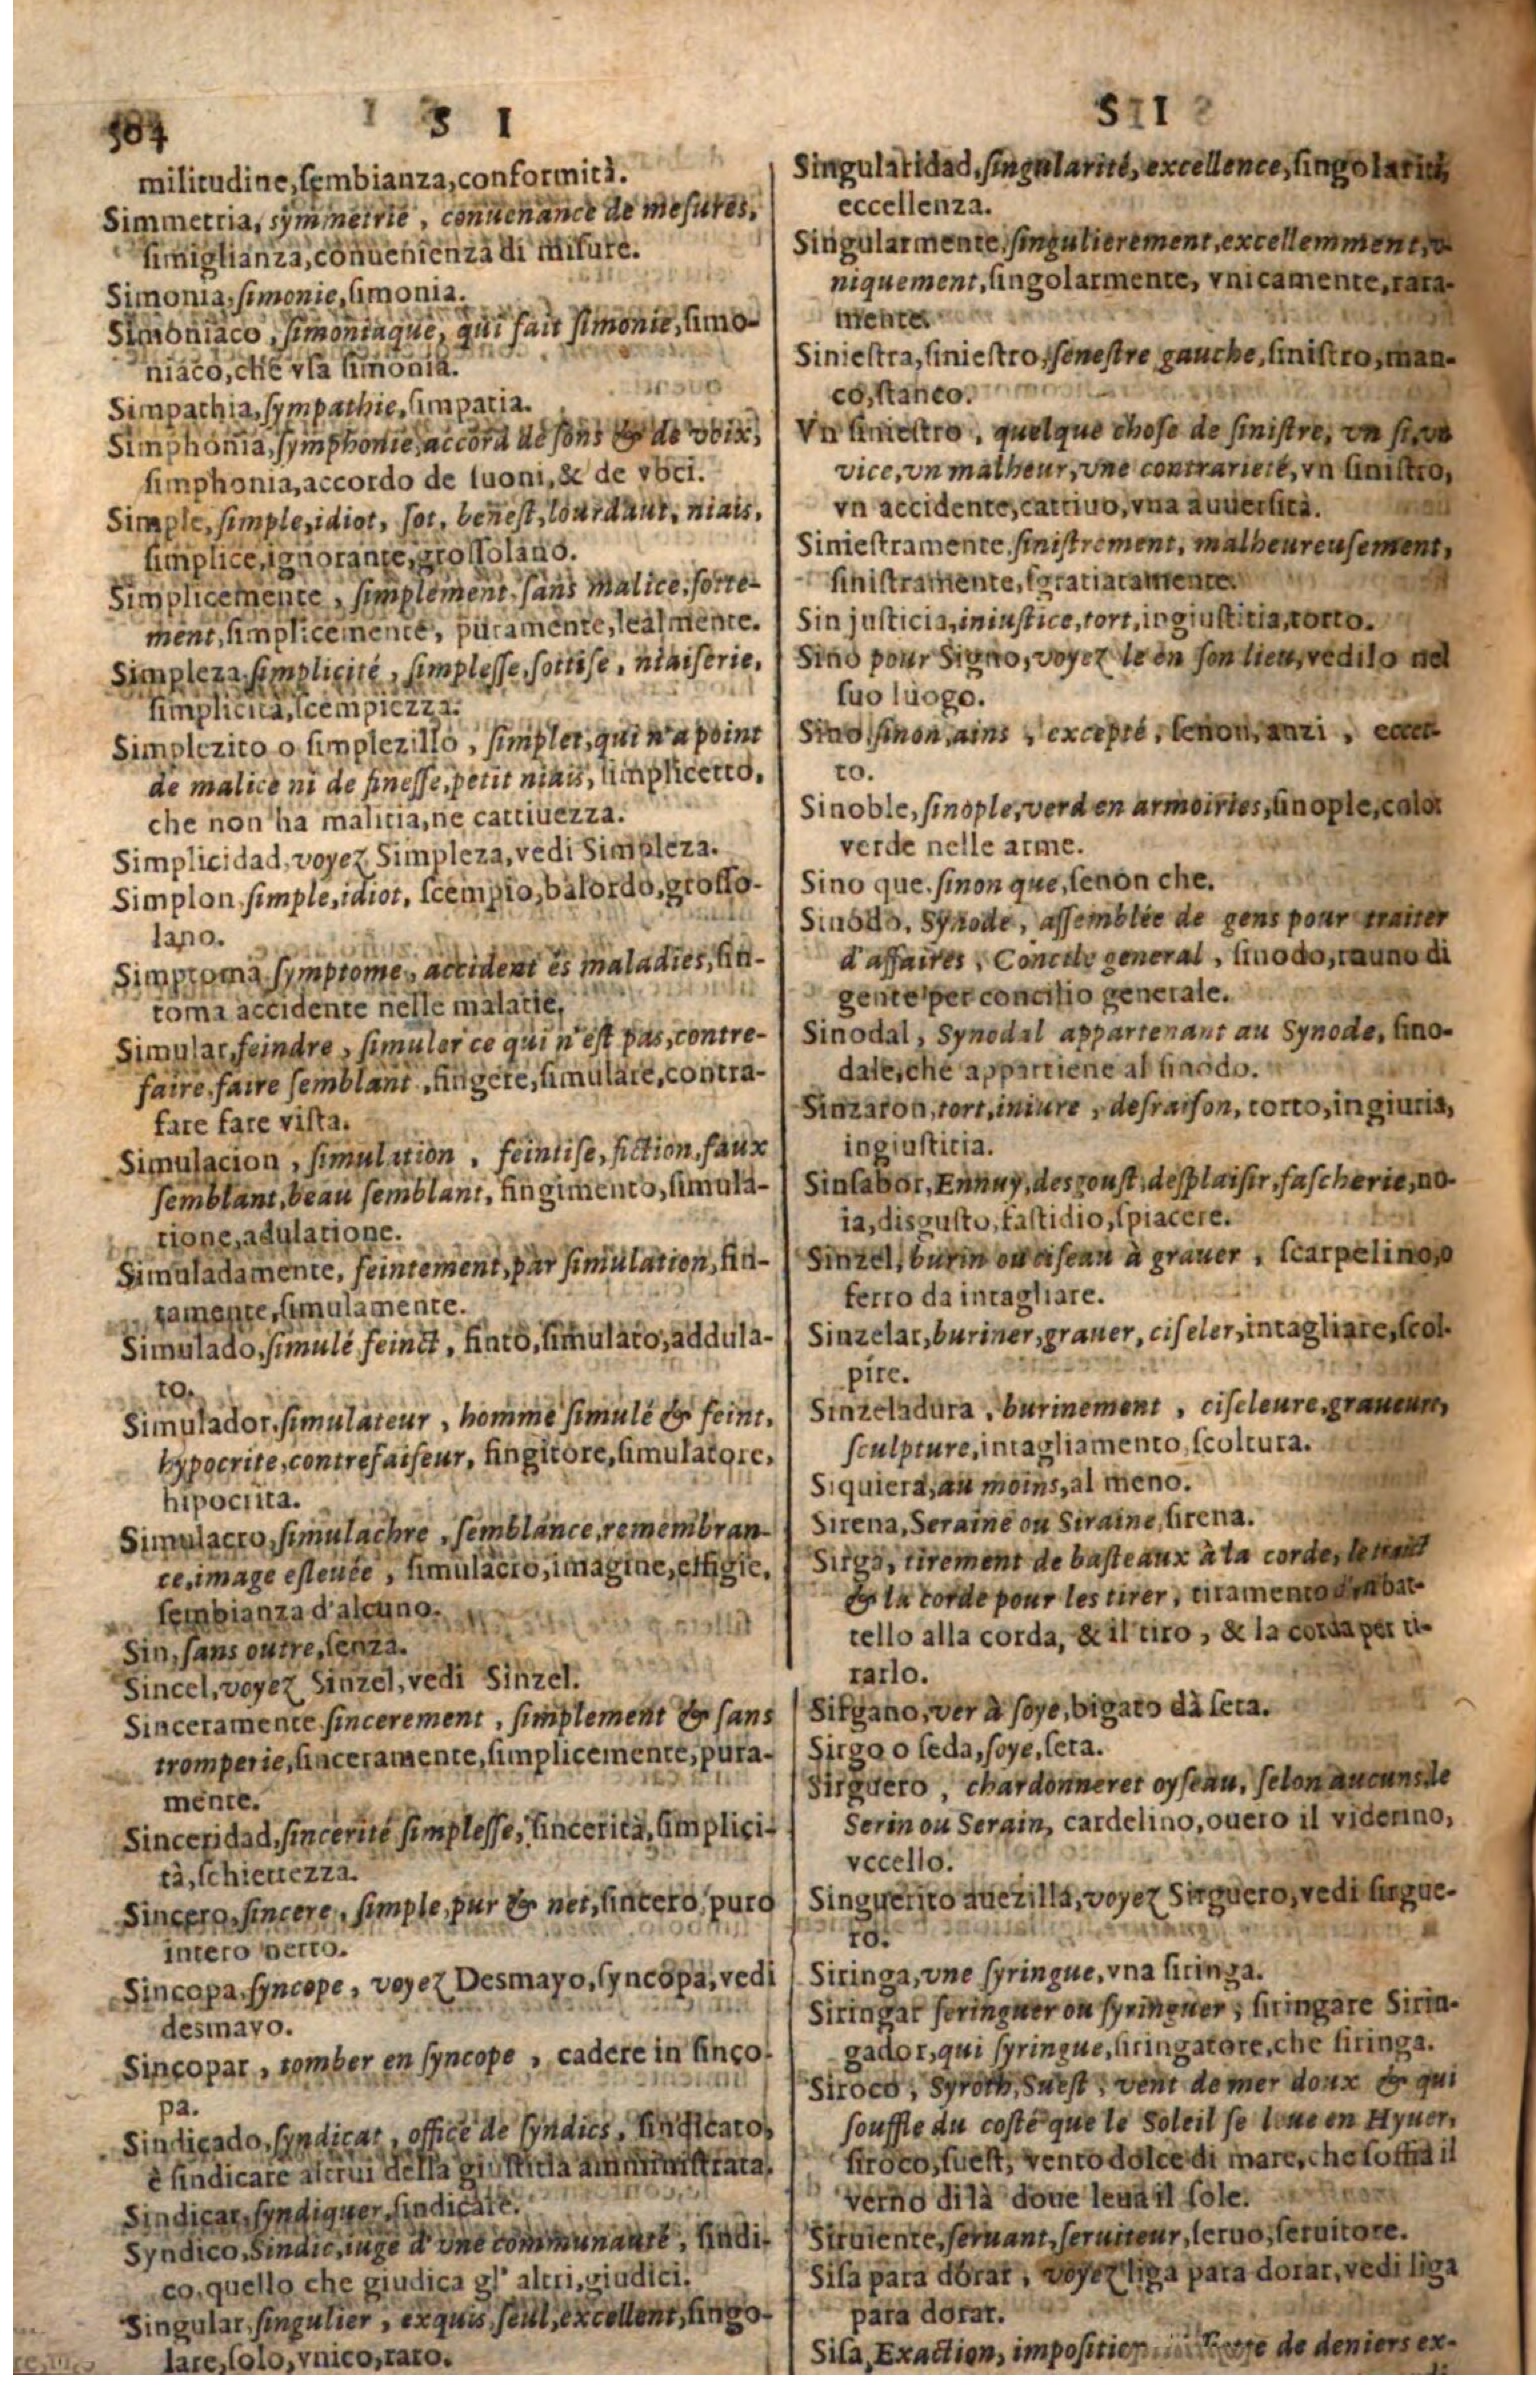 584 S I
militudine,ſembianza,conformità.
Simmetria, symmetrie, conuenance de meſures,
ſimiglianza,conuenienza di miſure.
Simonia,ſimonie,ſimonia.
Simoniaco, ſimoniaque, qui fait ſimonie,ſimo-
niaco,che vſa ſimonia.
Simpathia,ſympathie,ſimpatia.
Simphonia,ſymphonie,accord de ſons & de voix,
ſimphonia,accordo de ſuoni,& de voci.
Simple,ſimple,idiot, ſot, beneſt,lourdaut, niais,
ſimplice,ignorante,groſſolano.
Simplicemente, ſimplement,ſans malice,ſotte-
ment,ſimplicemente, puramente,lealmente.
Simpleza,ſimplicité, ſimpleſſe,ſottiſe, niaiſerie,
ſimplicità,ſcempiezza.
Simplezito o ſimplezillo, ſimplet,qui n'a point
de malice ni de fineſſe,petit niais,ſimplicetto,
che non ha malitia,ne cattiuezza.
Simplicidad,voyez Simpleza,vedi Simpleza.
Simplon,ſimple,idiot, ſcempio,balordo,groſſo-
lano.
Simptoma,ſymptome, accident és maladies,ſin-
toma accidente nelle malatie.
Simular,feindre, ſimuler ce qui n'eſt pas,contre-
faire,faire ſemblant,fingere,ſimulare,contra-
fare fare viſta.
Simulacion, ſimulation, feintiſe,fiction,faux
ſemblant,beau ſemblant, fingimento,ſimula-
tione,adulatione.
Simuladamente, feintement,par ſimulation,fin-
tamente,ſimulamente.
Simulado,ſimulé feinct, finto,ſimulato,addula-
to.
Simulador,ſimulateur, homme ſimulé & feint,
hypocrite,contrefaiſeur, fingitore,ſimulatore,
hipocrita.
Simulacro,ſimulachre, ſemblance,remembran-
ce,image eſleuée, ſimulacro,imagine,effigie,
ſembianza d'alcuno.
Sin,ſans outre,ſenza.
Sincel,voyez Sinzel,vedi Sinzel.
Sinceramente ſincerement, ſimplement & ſans
tromperie,ſinceramente,ſimplicemente,pura-
mente.
Sinceridad,ſincerité ſimpleſſe, ſincerità,ſimplici-
tà,ſchiettezza.
Sincero,ſincere, ſimple,pur & net,ſincero,puro
intero netto.
Sincopa,ſyncope, voyez Desmayo,ſyncopa,vedi
desmayo.
Sincopar, tomber en ſyncope, cadere in ſinco-
pa.
Sindicado,ſyndicat, office de ſyndics, ſindicato,
è ſindicare altrui della giuſtitia amminiſtrata.
Sindicar,ſyndiquer,ſindicare.
Syndico,Sindic,iuge d'vne communauté, ſindi-
co,quello che giudica gl' altri,giudici.
Singular,ſingulier, exquis,ſeul,excellent,ſingo-
lare,ſolo,vnico,raro.
S I
Singularidad,ſingularité,excellence,ſingolarità,
eccellenza.
Singularmente,ſingulierement,excellemment,v-
niquement,ſingolarmente, vnicamente,rara-
mente.
Sinieſtra,ſinieſtro,ſeneſtre gauche,ſiniſtro,man-
co,ſtanco.
Vn ſinieſtro, quelque choſe de ſiniſtre, vn ſi,vn
vice,vn malheur,vne contrarieté,vn ſiniſtro,
vn accidente,cattiuo,vna auuerſità.
Sinieſtramente,ſiniſtrement, malheureuſement,
ſiniſtramente,ſgratiatamente.
Sin juſticia,iniuſtice,tort,ingiuſtitia,torto.
Sino pour Signo,voyez le en ſon lieu,vedilo nel
ſuo luogo.
Sino,ſinon,ains, excepté, ſenon,anzi, eccet-
to.
Sinoble,ſinople,verd en armoiries,ſinople,color
verde nelle arme.
Sino que,ſinon que,ſenon che.
Sinodo, Synode, aſſemblée de gens pour traiter
d'affaires, Concile general, ſinodo,rauno di
gente per concilio generale.
Sinodal, Synodal appartenant au Synode, ſino-
dale,che appartiene al ſinodo.
Sinzaron,tort,iniure, deſraiſon, torto,ingiuria,
ingiuſtitia.
Sinſabor,Ennuy,desgouſt,deſplaiſir,faſcherie,no-
ia,disguſto,faſtidio,ſpiacere.
Sinzel, burin ou ciſeau à grauer, ſcarpelino,o
ferro da intagliare.
Sinzelar,buriner,grauer, ciſeler,intagliare,ſcol-
pire.
Sinzeladura, burinement, ciſeleure,graueure,
ſculpture,intagliamento,ſcoltura.
Siquiera,au moins,al meno.
Sirena,Seraine ou Siraine,ſirena.
Sirga, tirement de baſteaux à la corde, le traict
& la corde pour les tirer, tiramento d'vn bat-
tello alla corda, & il tiro, & la corda per ti-
rarlo.
Sirgano,ver à ſoye,bigato dà ſeta.
Sirgo o ſeda,ſoye,ſeta.
Sirguero, chardonneret oyſeau, ſelon aucuns,le
Serin ou Serain, cardelino,ouero il viderino,
vccello.
Singuerito auezilla,voyez Sirguero,vedi ſirgue-
ro.
Siringa,vne ſyringue,vna ſiringa.
Siringar ſeringuer ou ſyringuer, ſiringare Sirin-
gador,qui ſyringue,ſiringatore,che ſiringa.
Siroco, Syroth,Sueſt, vent de mer doux & qui
ſouffle du coſté que le Soleil ſe leue en Hyuer,
ſiroco,ſueſt, vento dolce di mare,che ſoffia il
verno di là doue leua il ſole.
Siruiente,ſeruant,ſeruiteur,ſeruo,ſeruitore.
Siſa para dorar, voyez liga para dorar,vedi liga
para dorar.
Siſa,Exaction, de deniers ex-